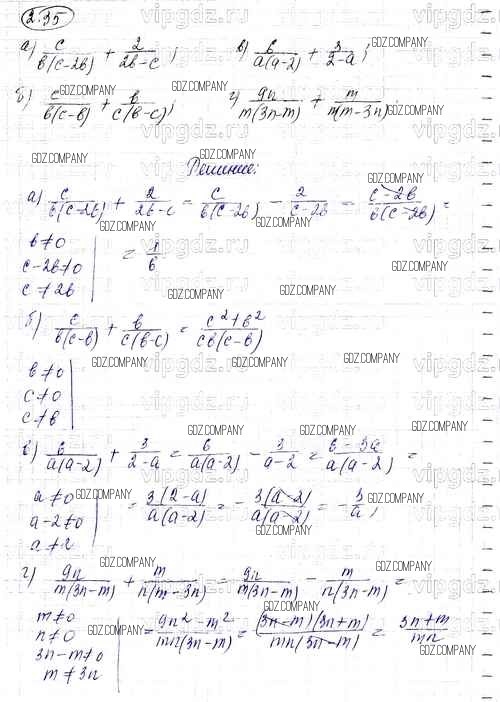 2.35
а) c/(b(c-2b)) + 2/(2b-c); в) 6/(a(a-2)) + 3/(2-a);
б) c/(b(c-b)) + b/(c(b-c)); г) 9n/(m(3n-m)) + m/(n(m-3n)).
Решение:
а) c/(b(c-2b)) + 2/(2b-c) = c/(b(c-2b)) - 2/(c-2b) = (c-2b)/(b(c-2b)) =
b≠0
c-2b≠0 = 1/b
c≠2b
б) c/(b(c-b)) + b/(c(b-c)) = (c²+b²)/(cb(c-b))
b≠0
c≠0
c≠b
в) 6/(a(a-2)) + 3/(2-a) = 6/(a(a-2)) - 3/(a-2) = (6-3a)/(a(a-2)) =
a≠0
a-2≠0 = 3(2-a)/(a(a-2)) = - 3(a-2)/(a(a-2)) = - 3/a;
a≠2
г) 9n/(m(3n-m)) + m/(n(m-3n)) = 9n/(m(3n-m)) - m/(n(3n-m)) =
m≠0
n≠0 = (9n²-m²)/(mn(3n-m)) = (3n-m)(3n+m)/(mn(3n-m)) = (3n+m)/(mn)
3n-m≠0
m≠3n
GDZ.COMPANY
vipgdz.ru